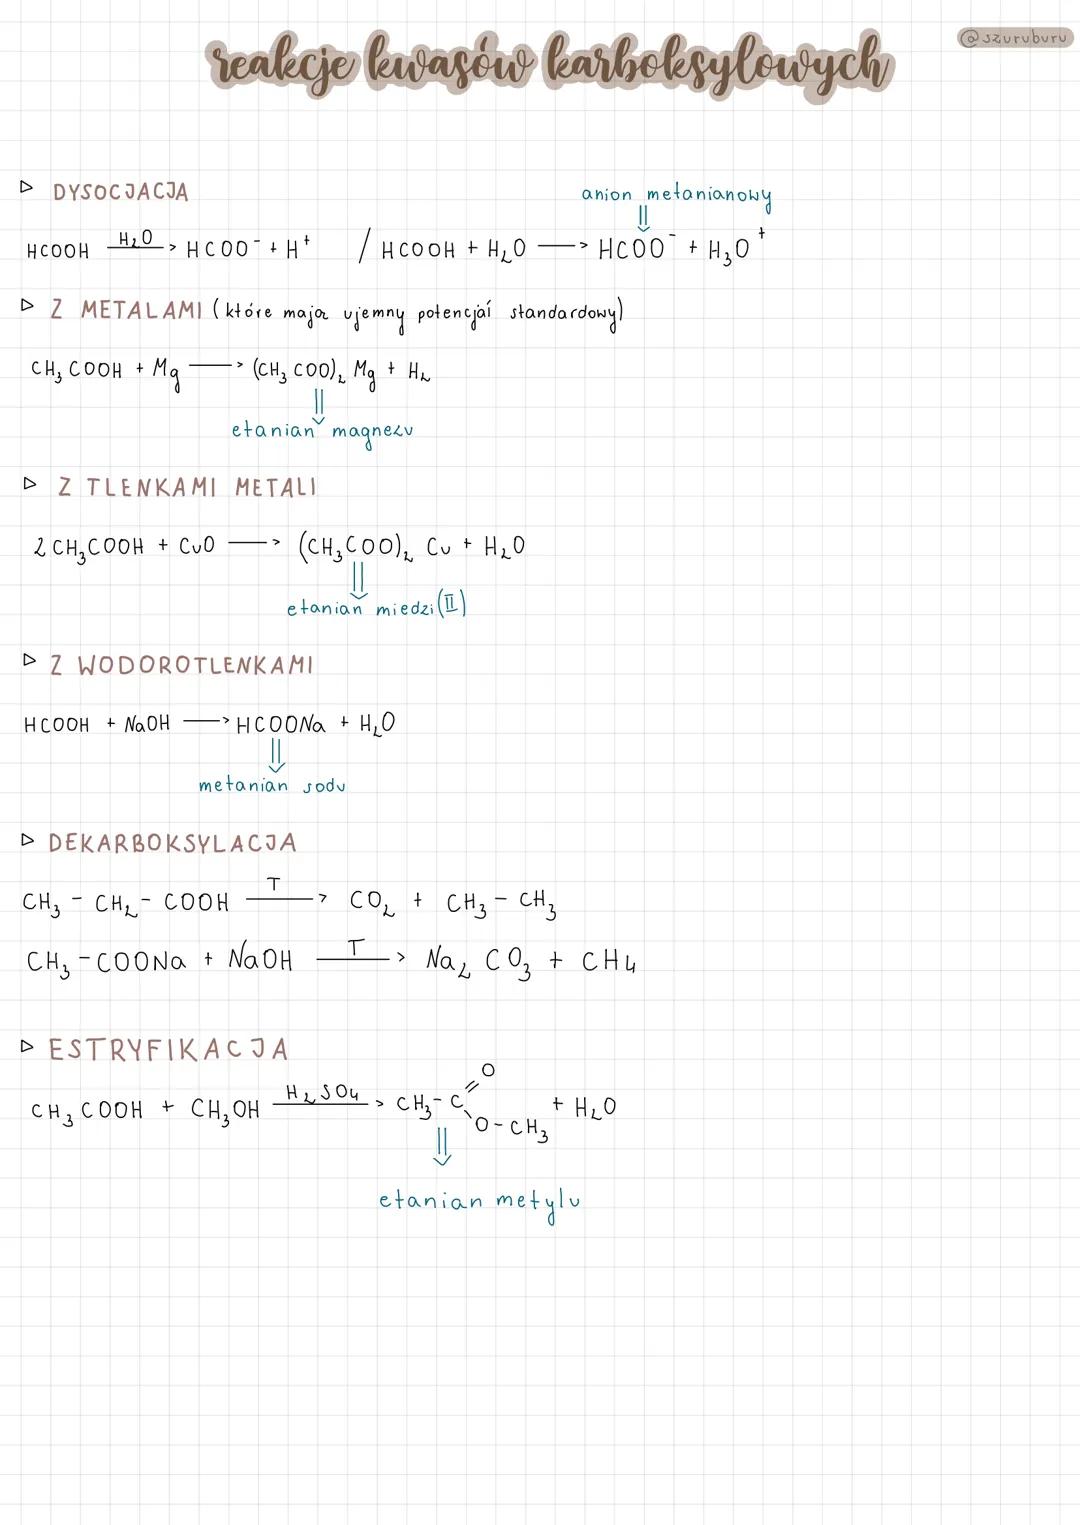 @szuruburu
reakcje kwasów karboksylowych
▷ DYSOCJACJA
anion metanianowy
HCOOH —H₂O→ HCOO⁻ + H⁺ / HCOOH + H₂O → HCOO⁻ + H₃O⁺
▷ Z METALAMI (które mają ujemny potencjał standardowy)
CH₃COOH + Mg → (CH₃COO)₂Mg + H₂
etanian magnezu
▷ Z TLENKAMI METALI
2CH₃COOH + CuO → (CH₃COO)₂Cu + H₂O
etanian miedzi (II)
▷ Z WODOROTLENKAMI
HCOOH + NaOH → HCOONa + H₂O
metanian sodu
▷ DEKARBOKSYLACJA
CH₃ - CH₂ - COOH —T→ CO₂ + CH₃ - CH₃
CH₃ - COONa + NaOH —T→ Na₂CO₃ + CH₄
▷ ESTRYFIKACJA
CH₃COOH + CH₃OH —H₂SO₄→ CH₃ - C =O O - CH₃ + H₂O
etanian metylu